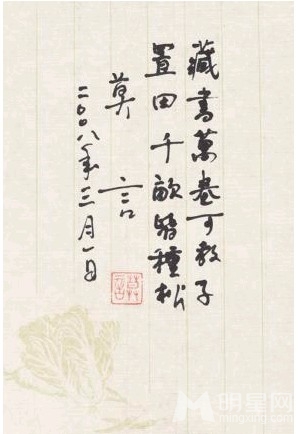 藏書萬卷可教子
置田千畝皆種松
莫言
二〇〇八年三月一日
莫言
明星网
mingxing.com